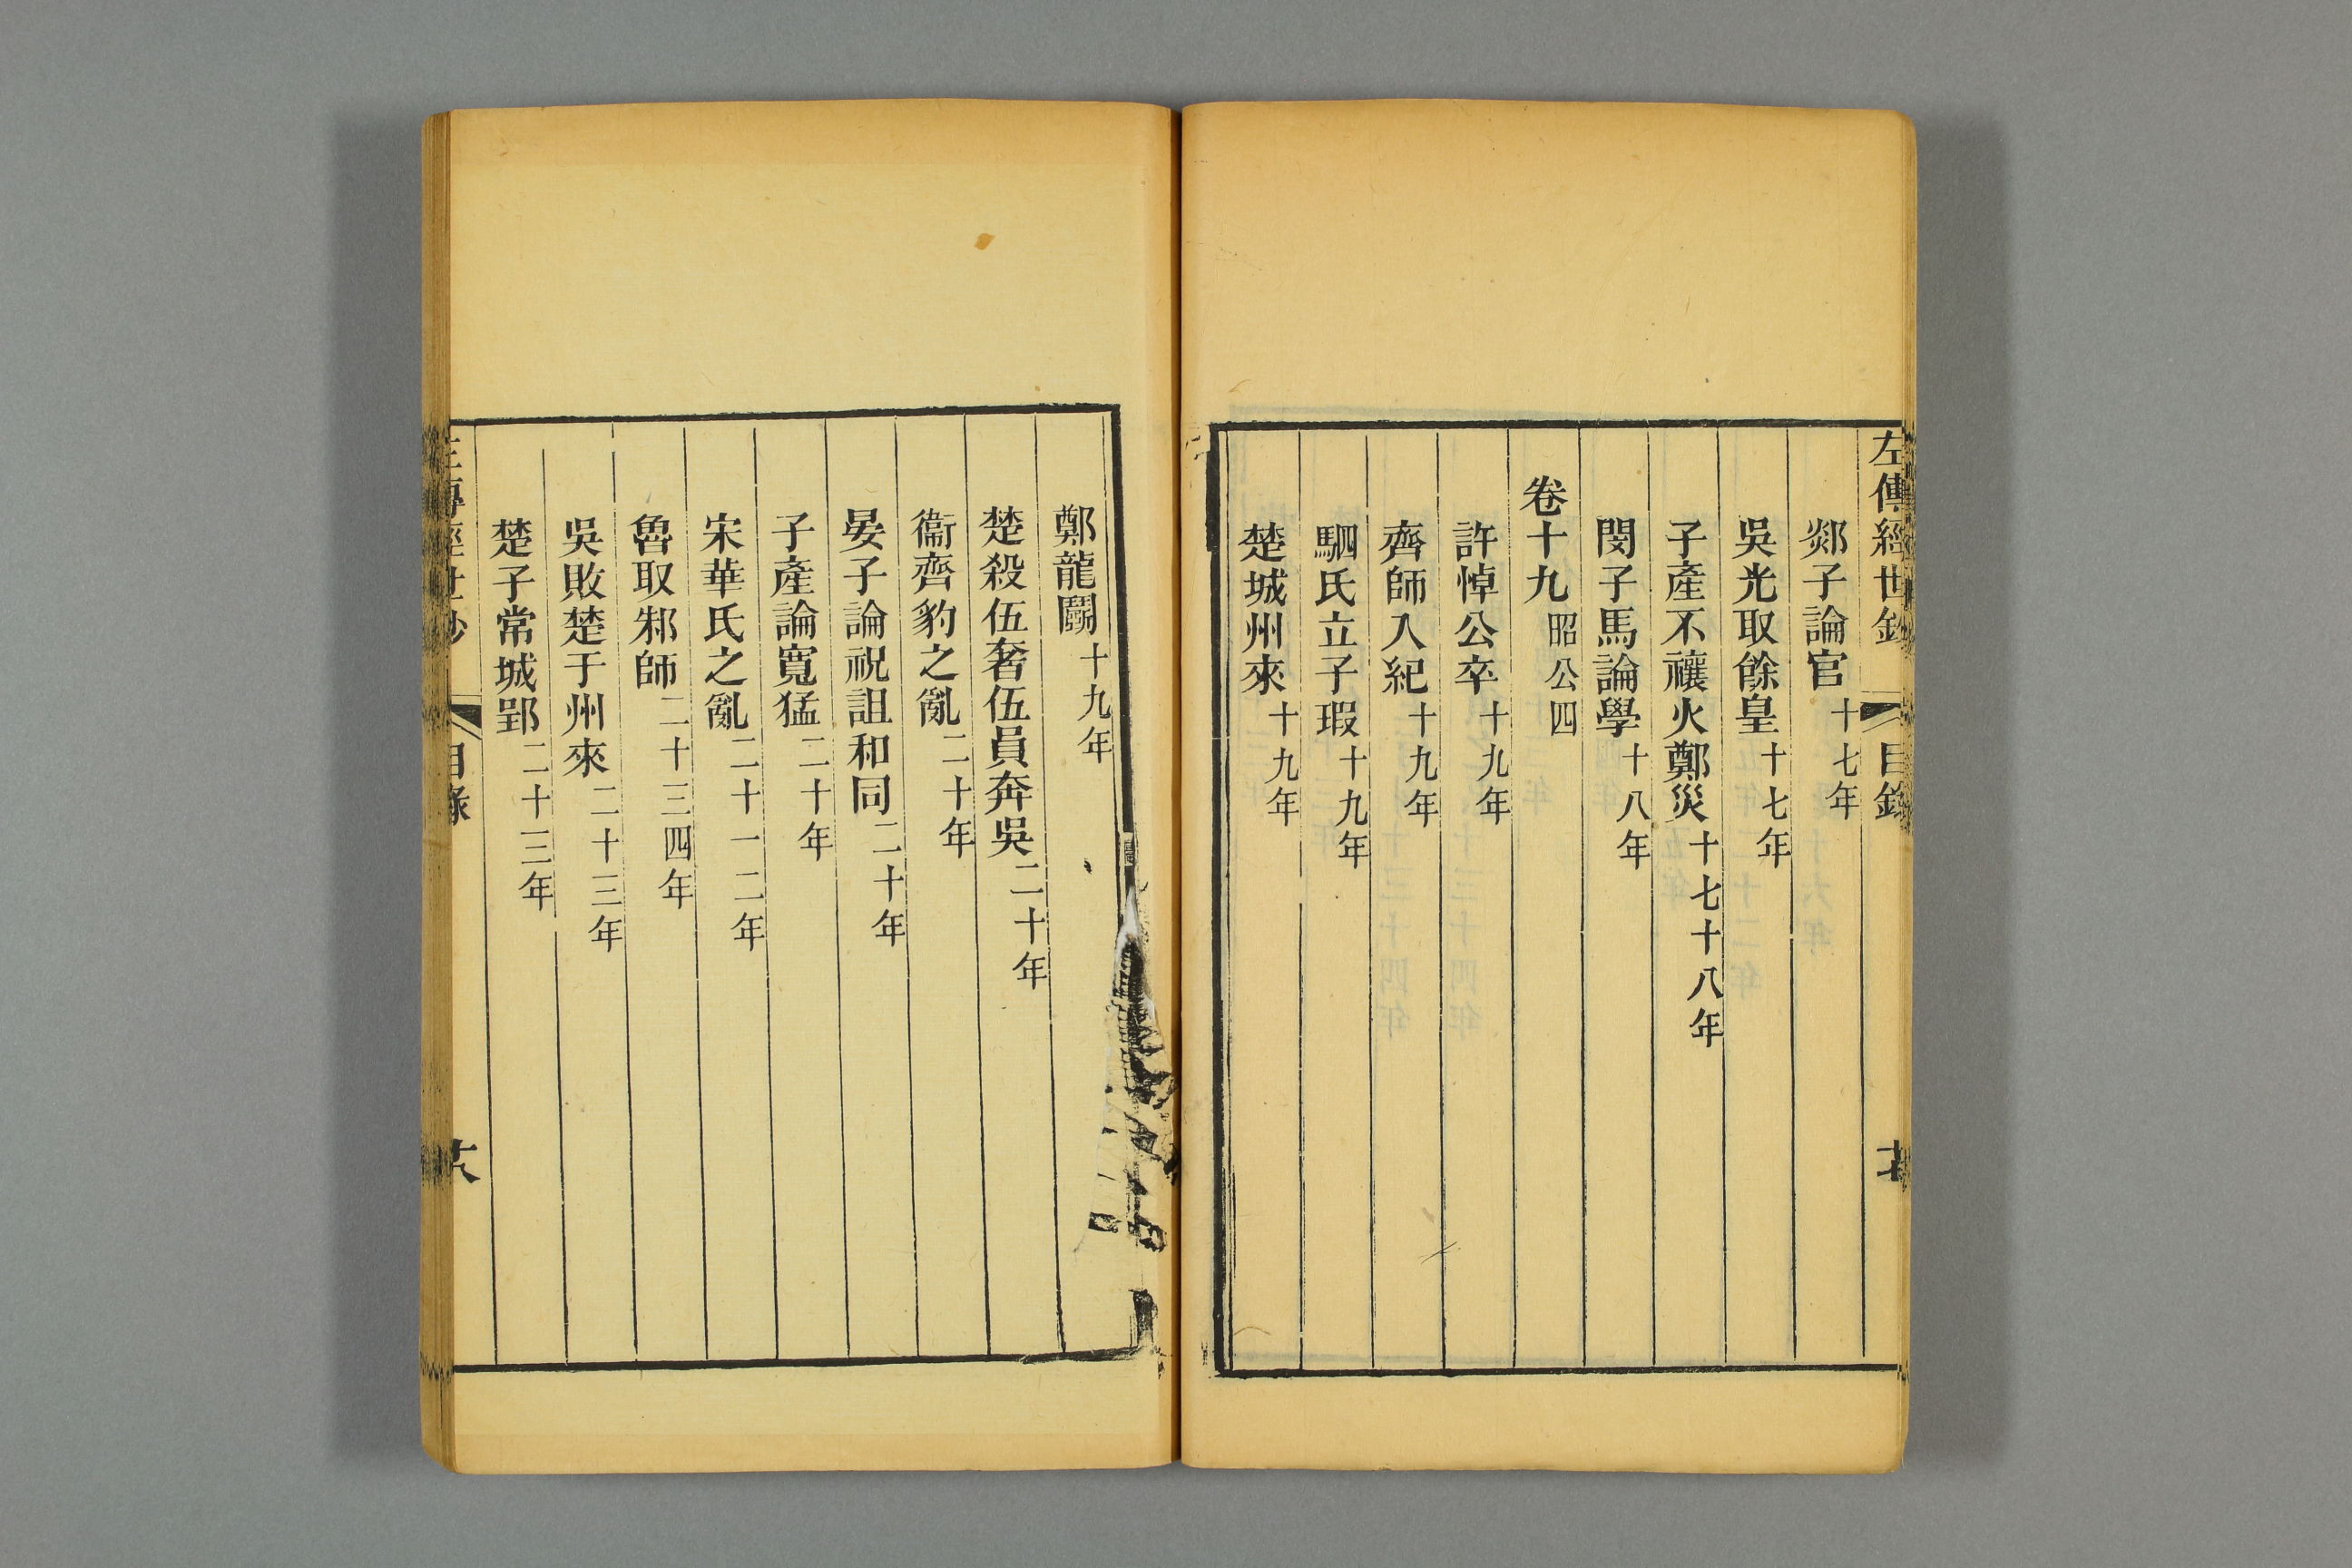 左傳經世鈔 目錄
郯子論官十七年
吳光取餘皇十七年
子產不禳火鄭災十七十八年
閔子馬論學十八年
卷十九昭公四
許悼公卒十九年
齊師入紀十九年
駟氏立子瑕十九年
楚城州來十九年
鄭龍鬭十九年
楚殺伍奢伍員奔吳二十年
衞齊豹之亂二十年
晏子論祝詛和同二十年
子產論寬猛二十年
宋華氏之亂二十一二年
魯取邾師二十三四年
吳敗楚于州來二十三年
楚子常城郢二十三年
左傳經世鈔 目錄